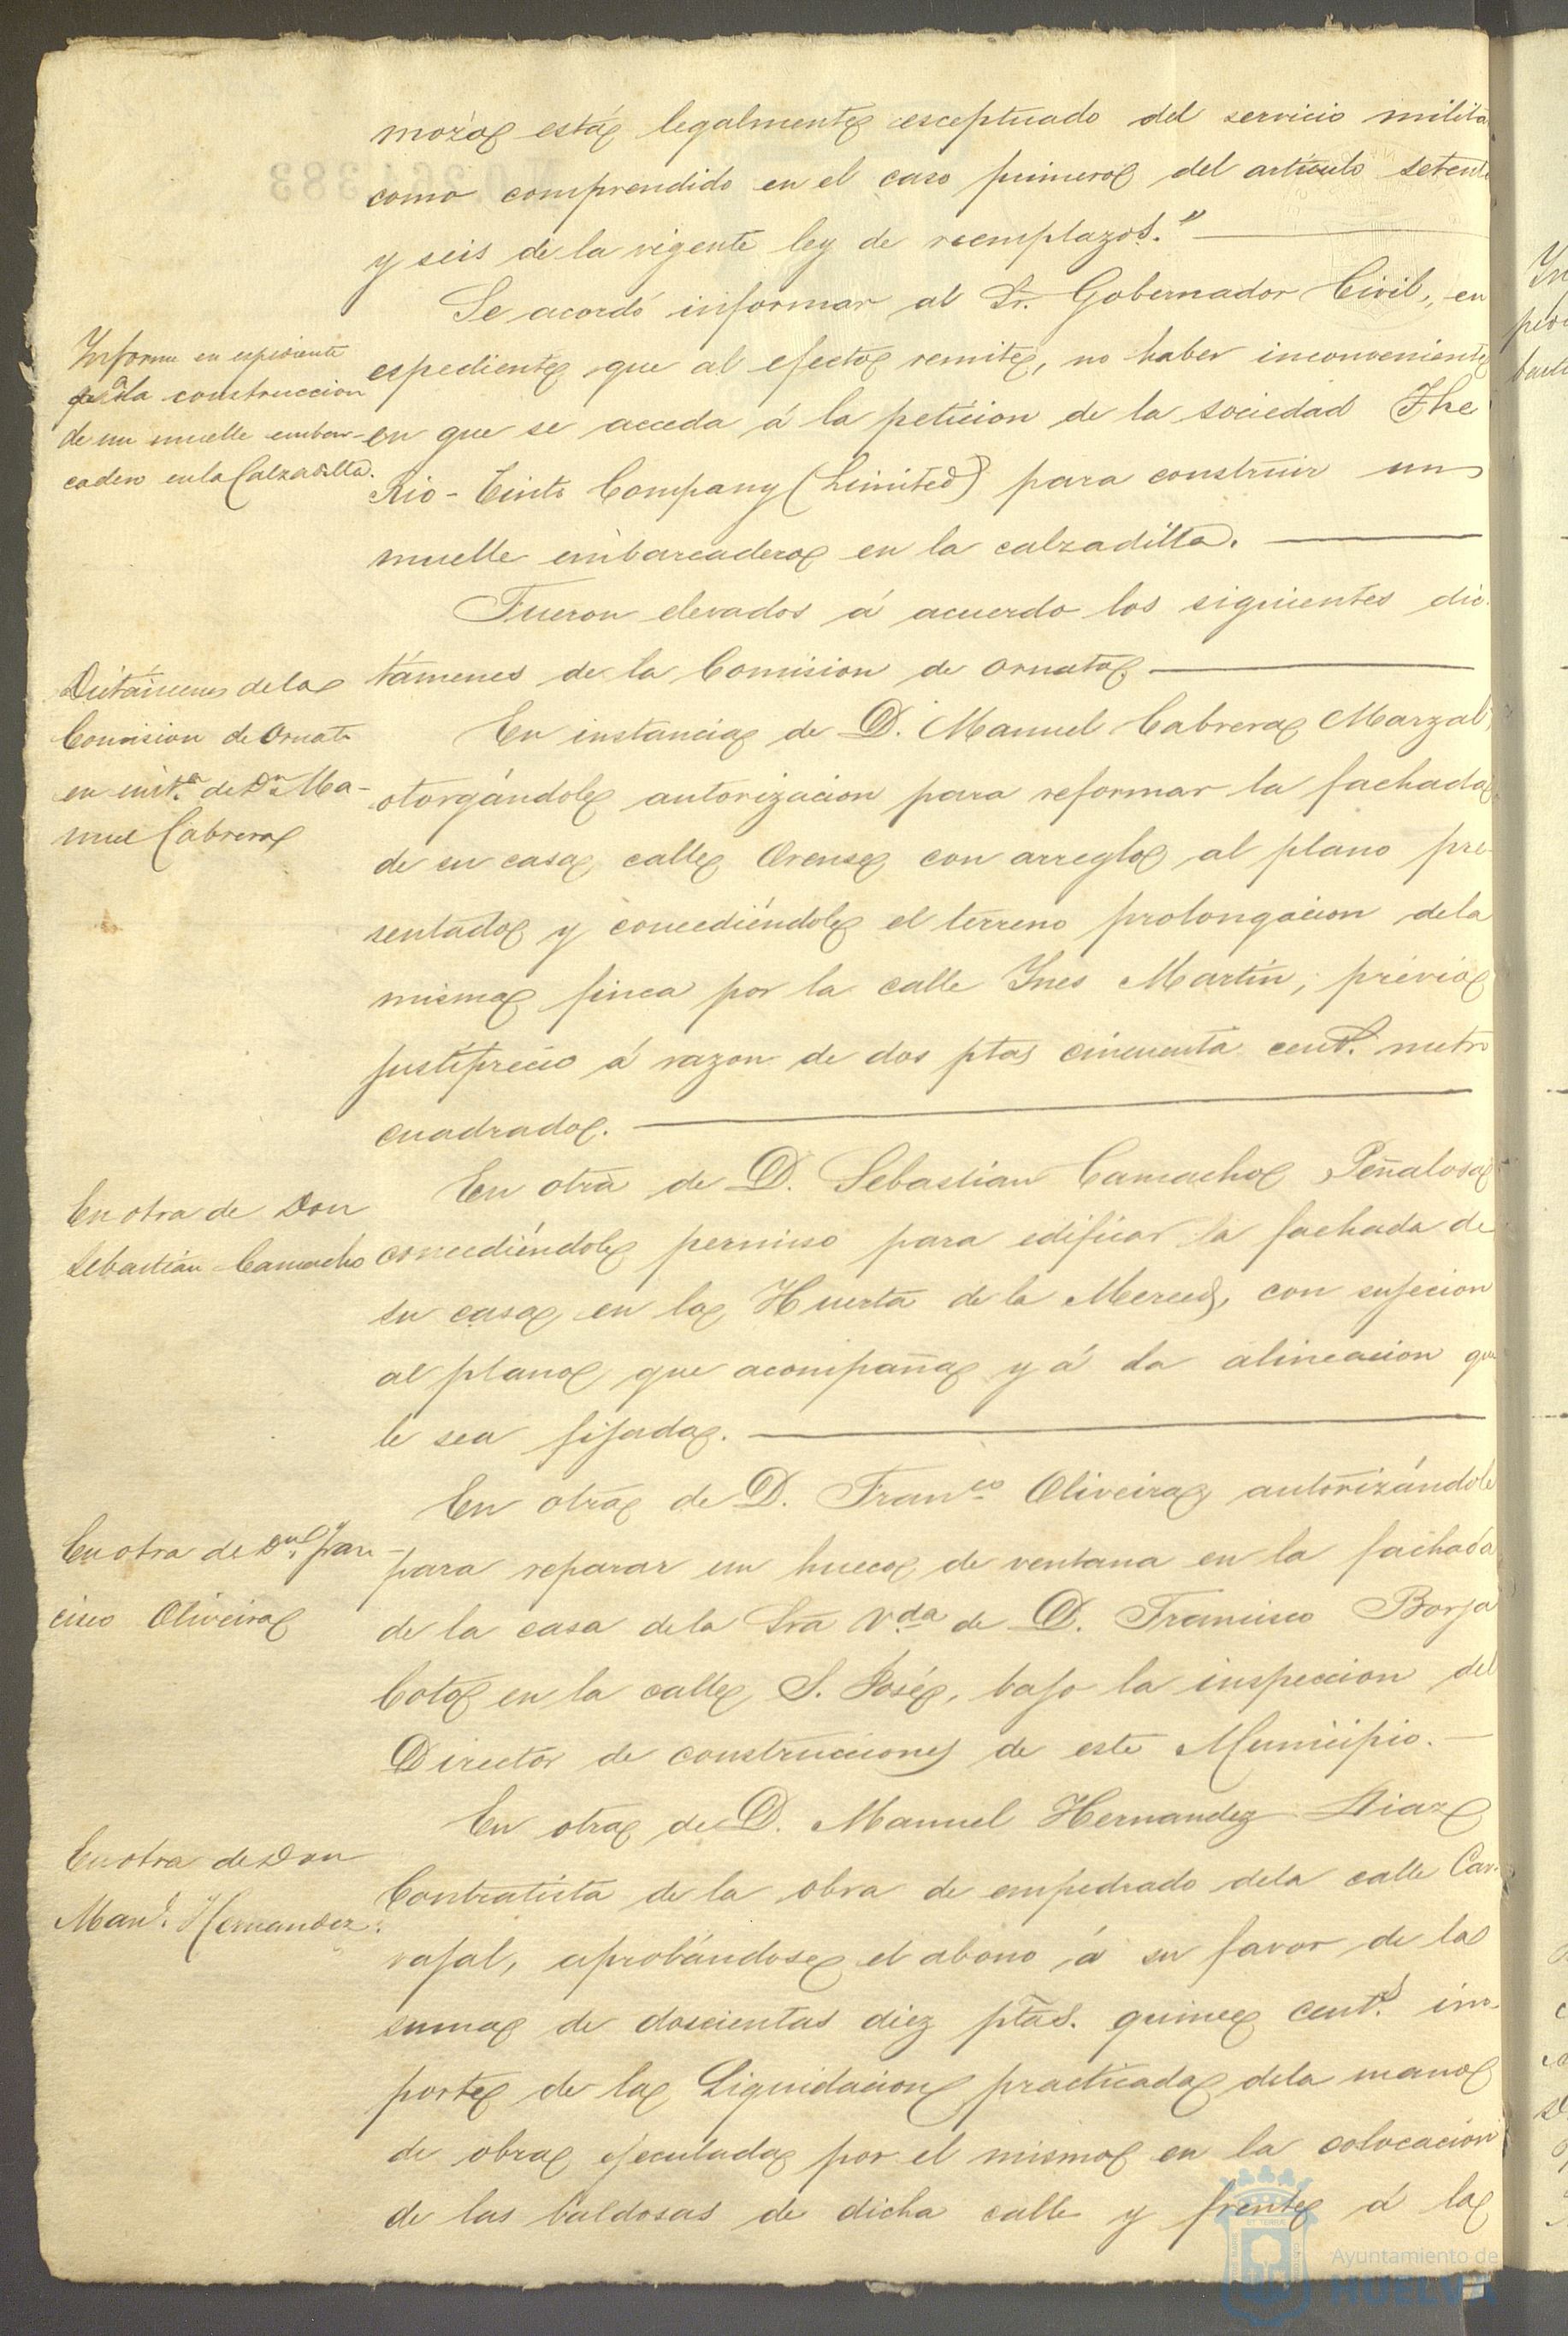 mozo está legalmente esceptuado del servicio milita
como comprendido en el caso primero del artículo setenta
y seis de la vigente ley de reemplazos."
Se acordó informar al Sr. Gobernador Civil, en
Informe en espediente
para la construccion
de un muelle embar-
cadero en la Calzadilla.
espediente que al efecto remite, no haber inconveniente
en que se acceda á la peticion de la sociedad The
Rio-Tinto Company (Limited) para construir un
muelle embarcadero en la calzadilla.
Fueron elevados á acuerdo los siguientes dic-
támenes de la Comision de ornato
Dictámenes de la
Comision de Ornato
en inst.ª de Dn. Ma-
nuel Cabrera
En instancia de D. Manuel Cabrera Marzal,
otorgándole autorizacion para reformar la fachada
de su casa, calle Orense, con arreglo al plano pre-
sentado y concediéndole el terreno prolongacion de la
misma finca por la calle Ynes Martin, prévio
justiprecio á razon de dos ptas cincuenta cents. metro
cuadrado.
En otra de Don
Sebastián Camacho
En otra de D. Sebastian Camacho Peñalosa
concediéndole permiso para edificar la fachada de
su casa, en la Huerta de la Merced, con sujecion
al plano que acompaña y á la alineacion que
le sea fijada.
En otra de Dn. Fran-
cisco Oliveira
En otra de D. Franco. Oliveira, autorizándole
para reparar un hueco de ventana en la fachada
de la casa de la Sra Vda de D. Francisco Borja
Coto en la calle S. José, bajo la inspeccion del
Director de construcciones de este Municipio.
En otra de Don
Manl. Hernandez
En otra de D. Manuel Hernandez Diaz
Contratista de la obra de empedrado de la calle Car-
vajal, aprobándose el abono á su favor de la
suma de doscientas diez ptas. quince cents. im-
porte de la Liquidacion practicada de la mano
de obra ejecutada por el mismo en la colocacion
de las baldosas de dicha calle y frente á la
Ayuntamiento de
HUELVA